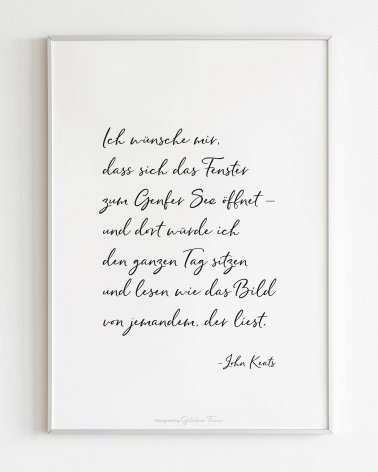 Ich wünsche mir,
dass sich das Fenster
zum Genfer See öffnet –
und dort würde ich
den ganzen Tag sitzen
und lesen wie das Bild
von jemandem, der liest.
-John Keats
Designed by